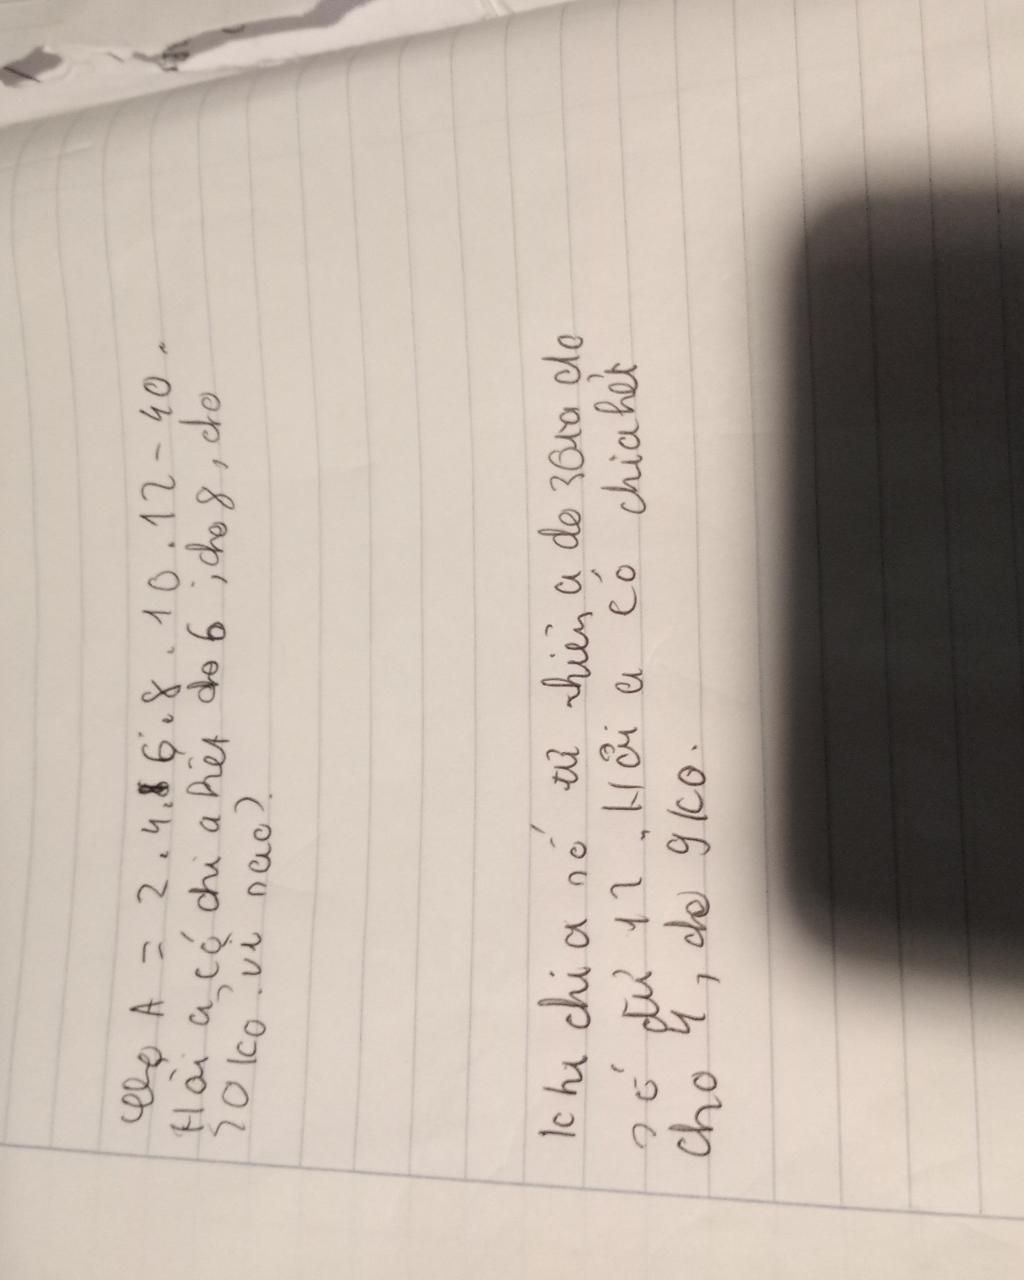 Cho A = 2.4.6.8.10.12-40.
Hỏi a có chia hết cho 6; cho 8, cho
20 ko. vì sao)
Khi chia số tự nhiên a cho 36 ta đc
số dư 12. Hỏi a có chia hết
cho 4, cho 9 ko.